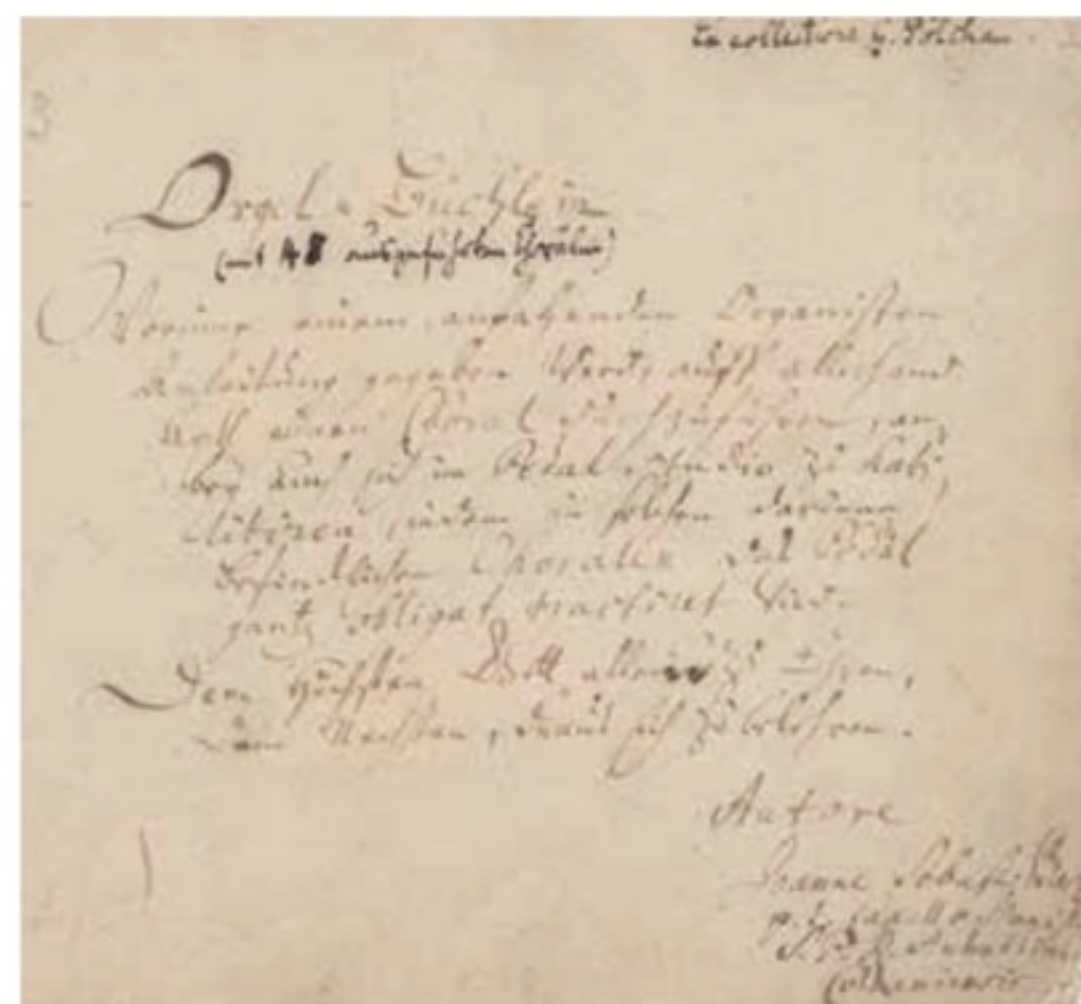 Ex collectione G. Pölchau
3
Orgel-Büchlein
(mit 48 ausgeführten Chorälen)
Worinne einem anfahenden Organisten
Anleitung gegeben wird, auff allerhand
Arth einen Choral durchzuführen, an-
bey auch sich im Pedal studio zu habi-
litiren, indem in solchen darinne
befindlichen Choralen das Pedal
gantz obligat tractiret wird.
Dem Höchsten Gott allein zu Ehren,
Dem Nechsten, draus sich zu belehren.
Autore
Joanne Sebast. Bach
p. t. Capellae Magist
S. P. R. Anhaltini
Cotheniensis